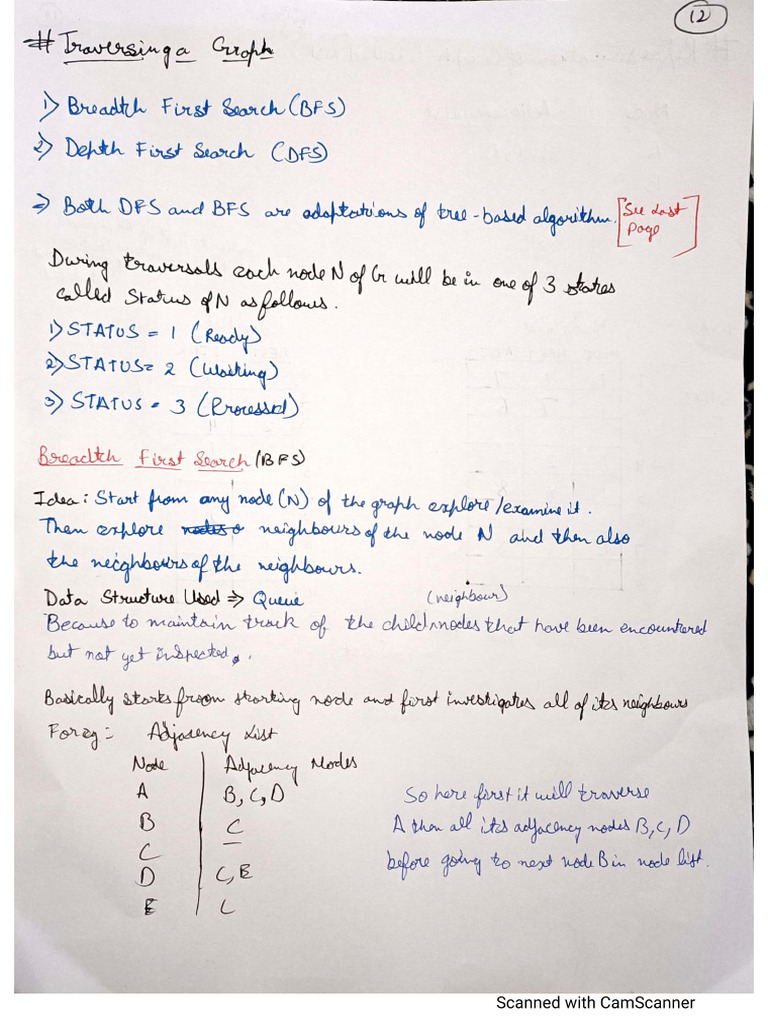 12
# Traversing a Graph
1) Breadth First Search (BFS)
2) Depth First Search (DFS)
=> Both DFS and BFS are adaptations of tree-based algorithm. [See Last Page]
During traversals each node N of G will be in one of 3 states
called Status of N as follows.
1) STATUS = 1 (Ready)
2) STATUS = 2 (Waiting)
3) STATUS = 3 (Processed)
Breadth First Search (BFS)
Idea: Start from any node (N) of the graph explore/examine it.
Then explore neighbours of the node N and then also
the neighbours of the neighbours.
Data Structure Used => Queue (neighbour)
Because to maintain track of the child nodes that have been encountered
but not yet inspected.
Basically starts from starting node and first investigates all of its neighbours
For eg:- Adjacency List
Node | Adjacency Nodes
A | B, C, D
B | C
C | —
D | C, E
E | C
So here first it will traverse
A then all its adjacency nodes B, C, D
before going to next node B in node list.
Scanned with CamScanner